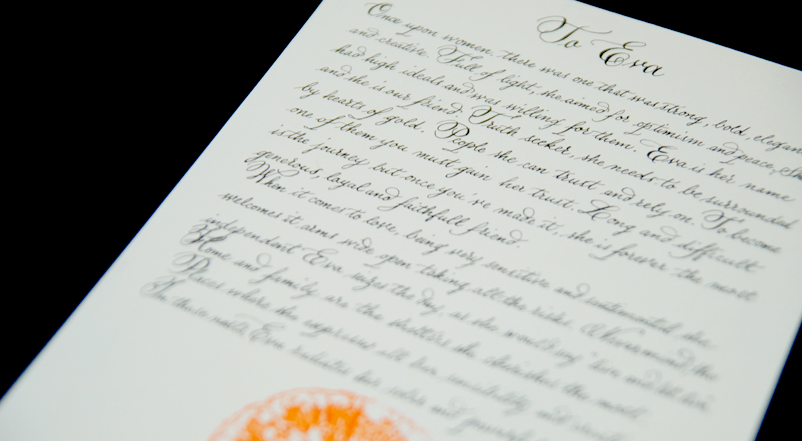 To Eva
Once upon women, there was one that was strong, bold, elegant
and creative. Full of light, she aimed for optimism and peace,
had high ideals and was willing for them. Eva is her name
and she is our friend. Truth seeker, she needs to be surrounded
by hearts of gold. People she can trust and rely on. To become
one of them you must gain her trust. Long and difficult
is the journey but once you've made it, she is forever the most
generous, loyal and faithfull friend.
When it comes to love, being very sensitive and sentimental she
welcomes it arms wide open taking all the risks.
independent Eva, seize the day, as she would say "live and let live
Home and family are the shelters she cherishes the most.
Places where she expresses all her sensibility and
In these notes, Eva radiates her